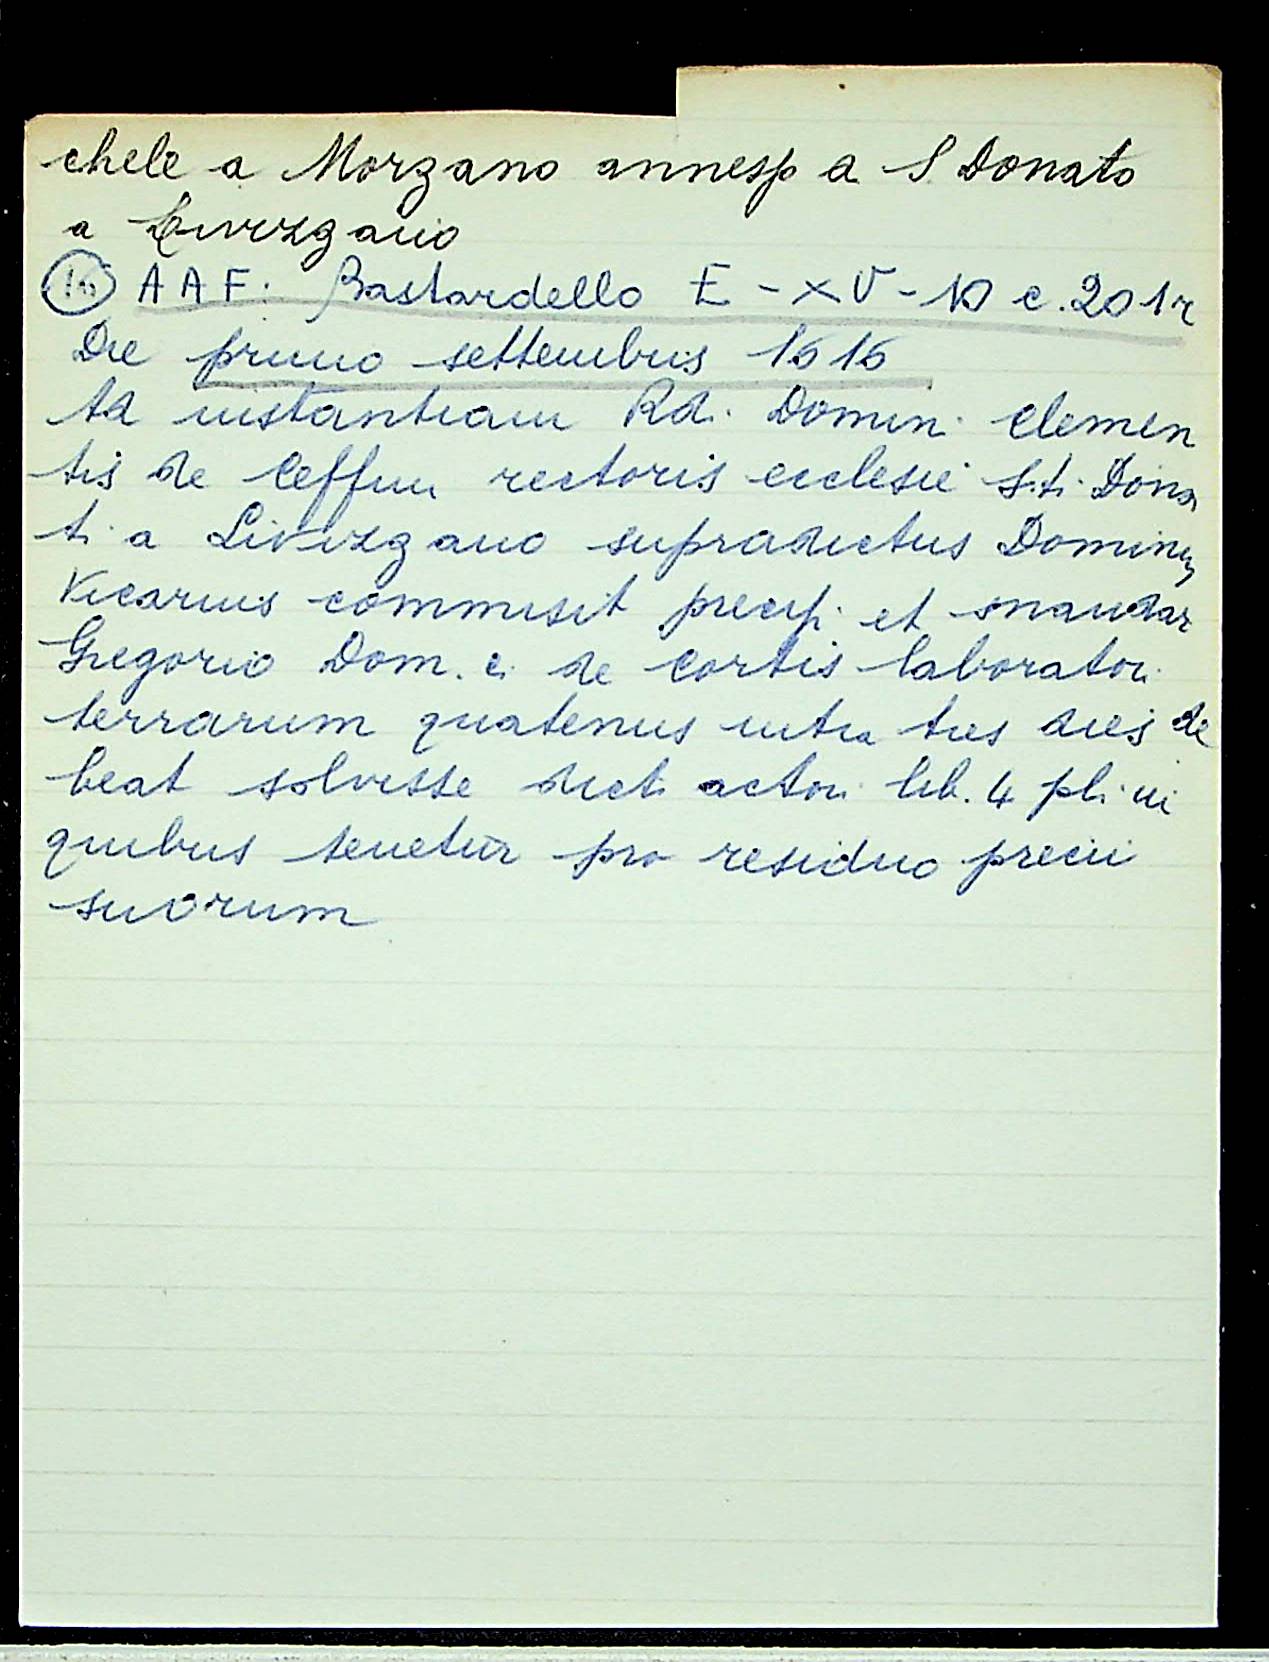 chele a Morzano annesso a S. Donato
a Livizzano
(16) A A F: Bastardello E - XV - 10 c. 201r
Die primo settembris 1616
Ad instantiam Rdi. Domin. Clemen
tis de Ceffini rectoris ecclesie S.ti Dona
ti a Livizzano supradictus Dominus
Vicarius commisit precipi et mandar
Gregorio Dom.ci de Cortis laboratori
terrarum quatenus intra tres dies de
beat solvisse dicti actori lib. 4 pli. in
quibus tenetur pro residuo precii
suorum